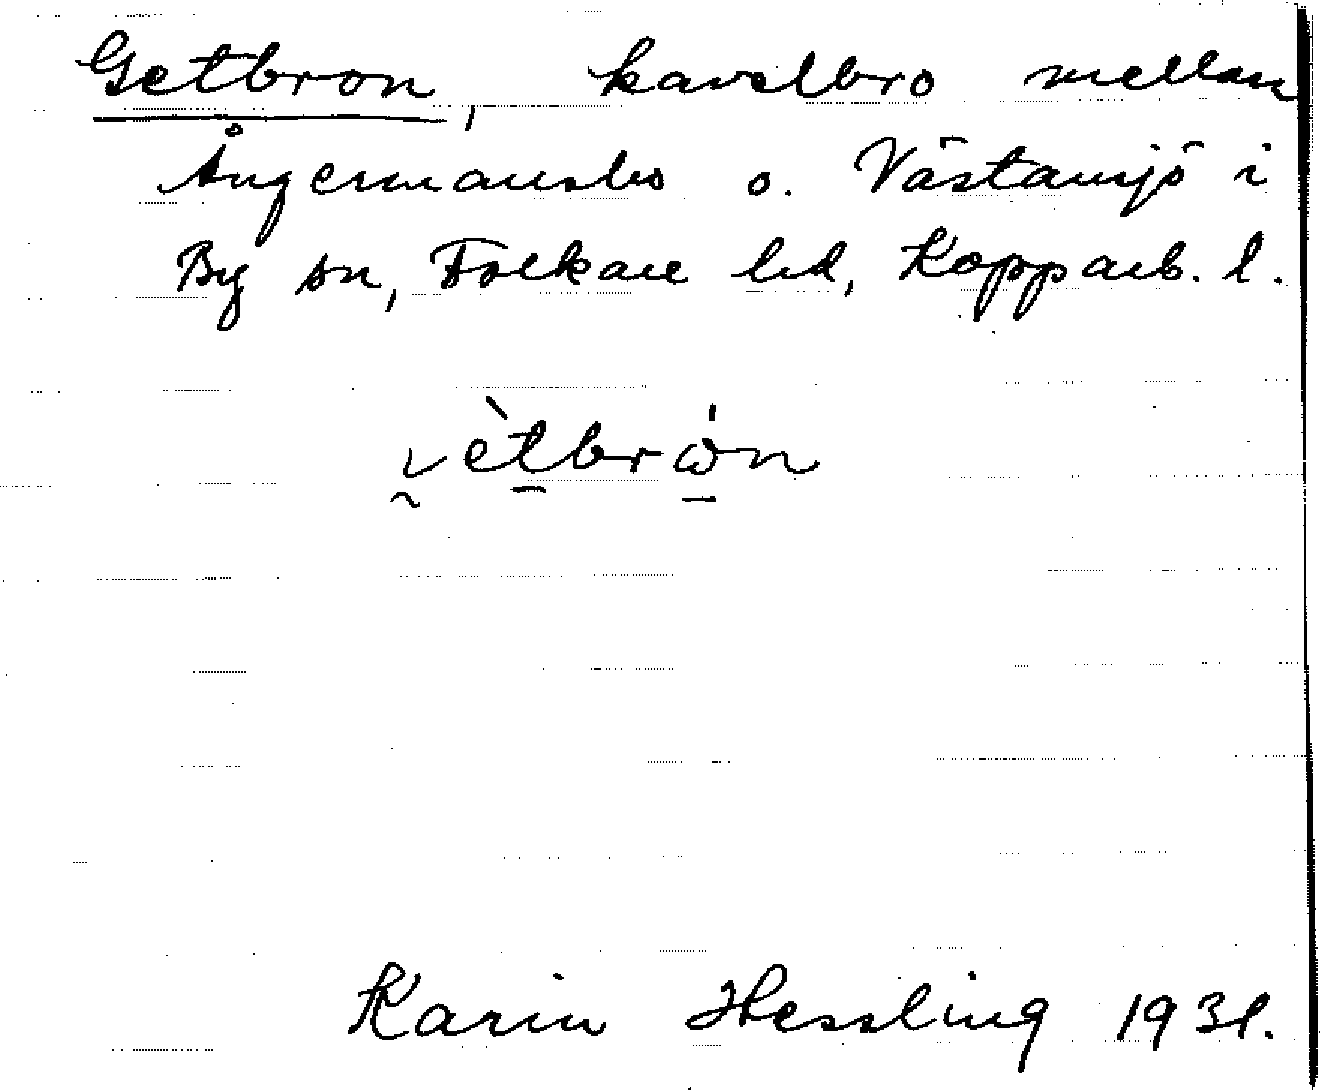 Getbron, kavelbro mellan
Ångermansbo o. Västansjö i
By sn, Folkare hd, Kopparb. l.
Karin Hessling 1931.